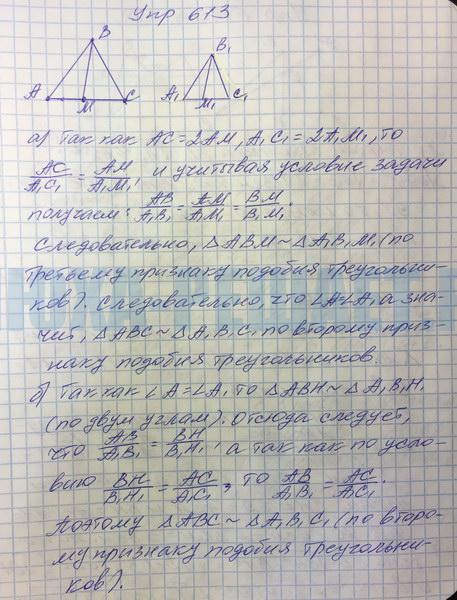 Упр 613
B
A
M
C
B₁
A₁
M₁
C₁
а) Так как AC = 2AM, A₁C₁ = 2A₁M₁, то
AC/A₁C₁ = AM/A₁M₁, и учитывая условие задачи
получаем: AB/A₁B₁ = AM/A₁M₁ = BM/B₁M₁.
Следовательно, △ABM ~ △A₁B₁M₁ (по
третьему признаку подобия треугольни-
ков). Следовательно, что ∠A=∠A₁ а зна-
чит, △ABC ~ △A₁B₁C₁ по второму приз-
наку подобия треугольников.
б) Так как ∠A = ∠A₁ то △ABH ~ △A₁B₁H₁
(по двум углам). Отсюда следует,
что AB/A₁B₁ = BH/B₁H₁, а так как по усло-
вию BH/B₁H₁ = AC/A₁C₁, то AB/A₁B₁ = AC/A₁C₁.
Поэтому △ABC ~ △A₁B₁C₁ (по второ-
му признаку подобия треугольни-
ков).